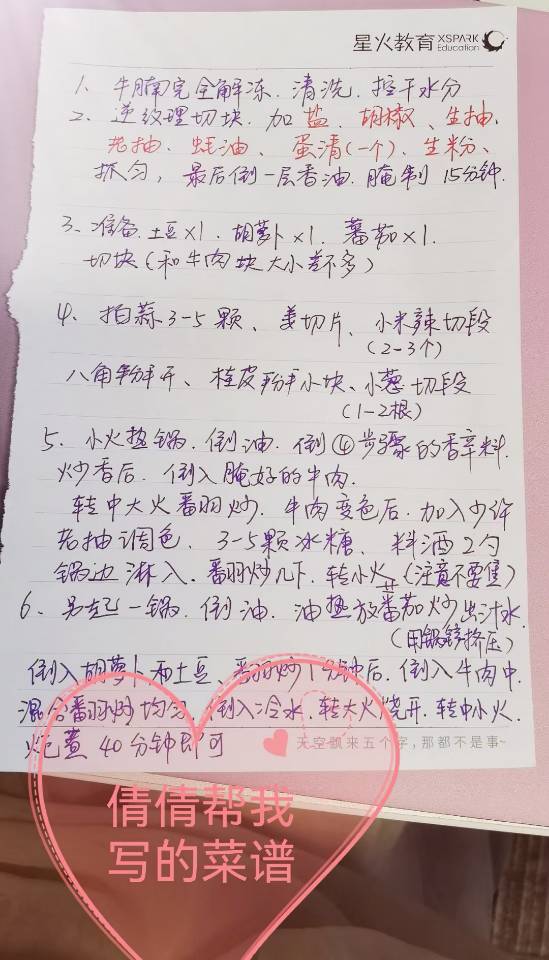 星火教育 XSPARK Education
1、牛腩完全解冻、清洗、控干水分
2、逆纹理切块、加盐、胡椒、生抽、
老抽、蚝油、蛋清(一个)、生粉、
抓匀，最后倒一层香油、腌制15分钟.
3、准备、土豆×1、胡萝卜×1、蕃茄×1.
切块(和牛肉块大小差不多)
4、拍蒜3-5颗、姜切片、小米辣切段
(2-3个)
八角掰开、桂皮掰小块、小葱切段
(1-2根)
5、小火热锅、倒油、倒④步骤的香辛料.
炒香后、倒入腌好的牛肉.
转中大火翻炒、牛肉变色后、加入少许
老抽调色、3-5颗冰糖、料酒2勺
锅边淋入、翻炒几下、转小火(注意不要煳)
6、另起一锅、倒油、油热放蕃茄炒出汁水
(用锅铲挤压)
倒入胡萝卜和土豆、翻炒1分钟后、倒入牛肉中
混合翻炒均匀、倒入冷水、转大火烧开、转中小火.
炖煮40分钟即可
天空飘来五个字，那都不是事~
倩倩帮我
写的菜谱